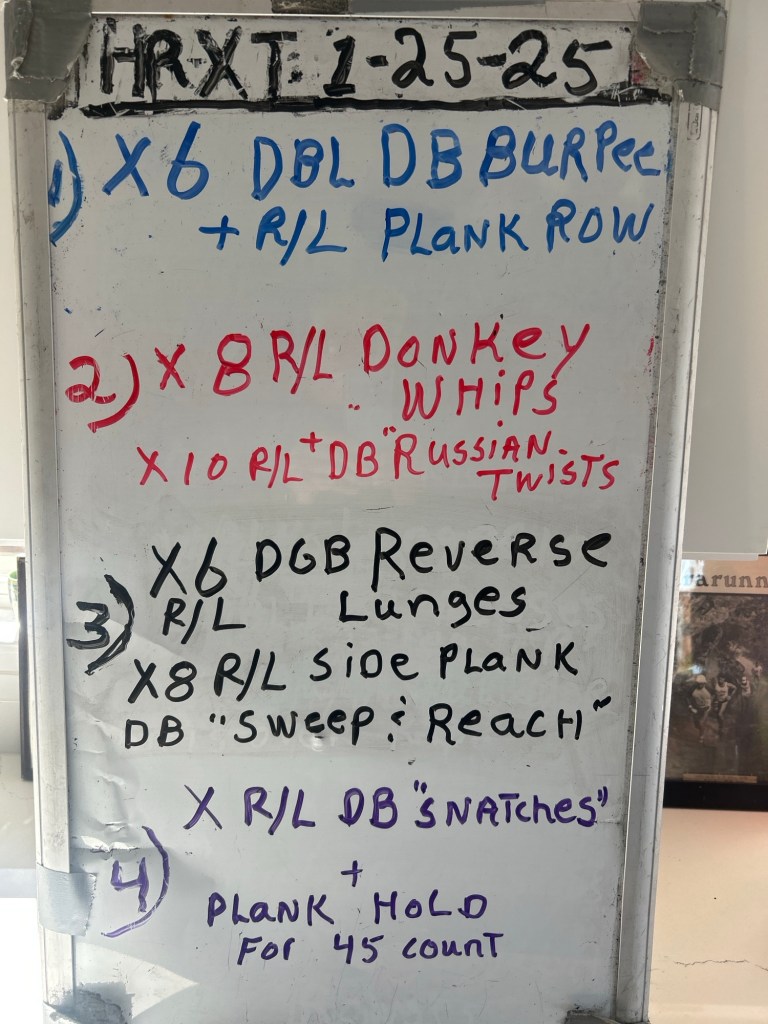 HRXT: 1-25-25
1) X6 DBL DB BURPee
+ R/L PLANK ROW
2) X 8 R/L DONKey
WHiPS
X10 R/L + DB "RUSSIAN
TWISTS
3) X6 DGB ReveRse
R/L Lunges
X8 R/L SiDe PLANK
DB "Sweep & ReacH"
4) X R/L DB "SNATches"
+
PLANK HOLD
For 45 counT
arunn